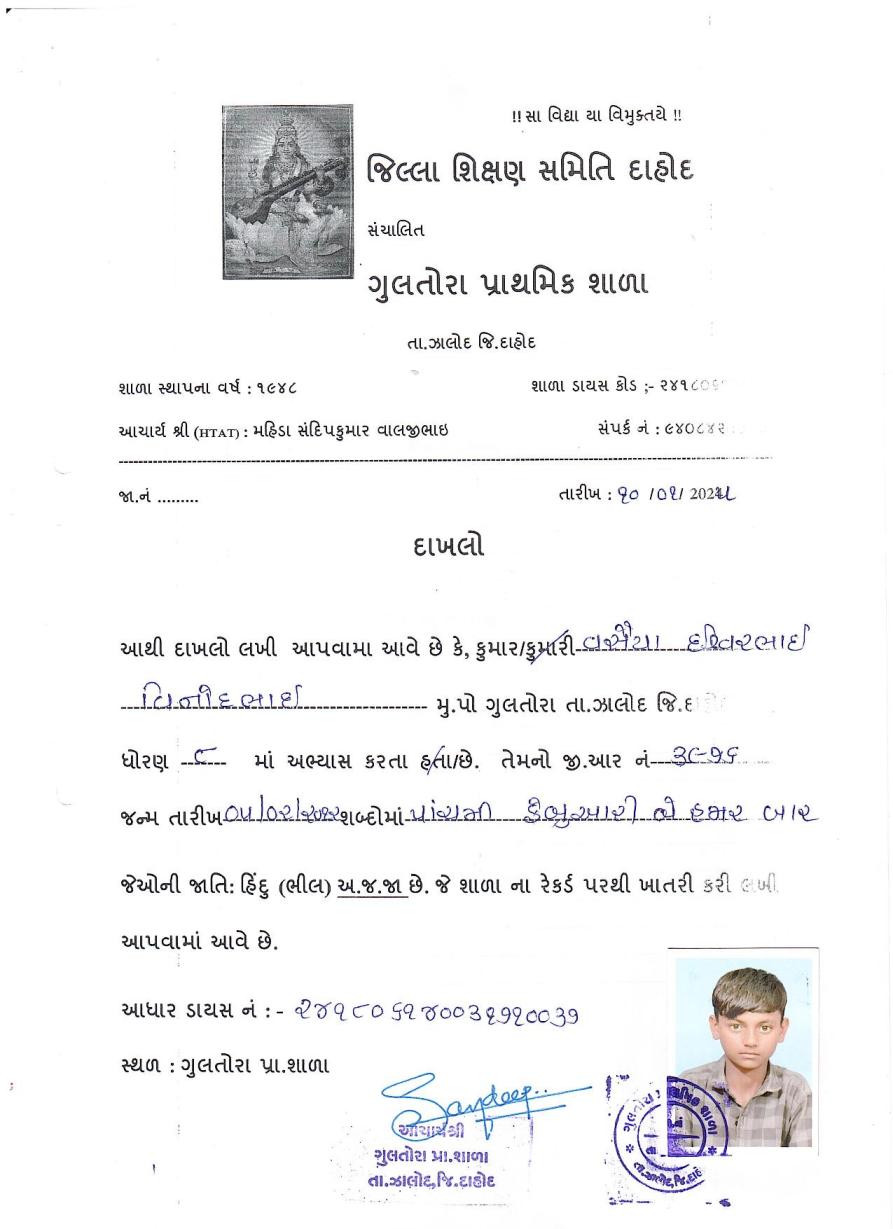 !! સા વિદ્યા યા વિમુક્તયે !!
જિલ્લા શિક્ષણ સમિતિ દાહોદ
સંચાલિત
ગુલતોરા પ્રાથમિક શાળા
તા.ઝાલોદ જિ.દાહોદ
શાળા સ્થાપના વર્ષ : ૧૯૪૮ શાળા ડાયસ કોડ ;-
આચાર્ય શ્રી (HTAT) : મહિડા સંદિપકુમાર વાલજીભાઇ સંપર્ક નં :
જા.નં ......... તારીખ : ૧૦ /૦૧/
દાખલો
આથી દાખલો લખી આપવામા આવે છે કે, કુમાર/કુમારી વસૈયા
વિનોદભાઈ મુ.પો ગુલતોરા તા.ઝાલોદ જિ.દાહોદ
ધોરણ ૮ માં અભ્યાસ કરતા હતા/છે. તેમનો જી.આર નં ૩૯૧૬
જન્મ તારીખ ૦૫/૦૨/૨૦૧૨ શબ્દોમાં પાંચમી ફેબ્રુઆરી બે હજાર બાર
જેઓની જાતિ: હિંદુ (ભીલ) અ.જ.જા છે. જે શાળા ના રેકર્ડ પરથી ખાતરી કરી લખી
આપવામાં આવે છે.
આધાર ડાયસ નં : - ૨૪૧૮૦૬૧૪૦૦૩૧૧૧૦૦૩૧
સ્થળ : ગુલતોરા પ્રા.શાળા
Sandeep
આચાર્યશ્રી
ગુલતોરા પ્રા.શાળા
તા.ઝાલોદ,જિ.દાહોદ
ગુલતોરા પ્રાથમિક શાળા
તા.ઝાલોદ,જિ.દાહોદ